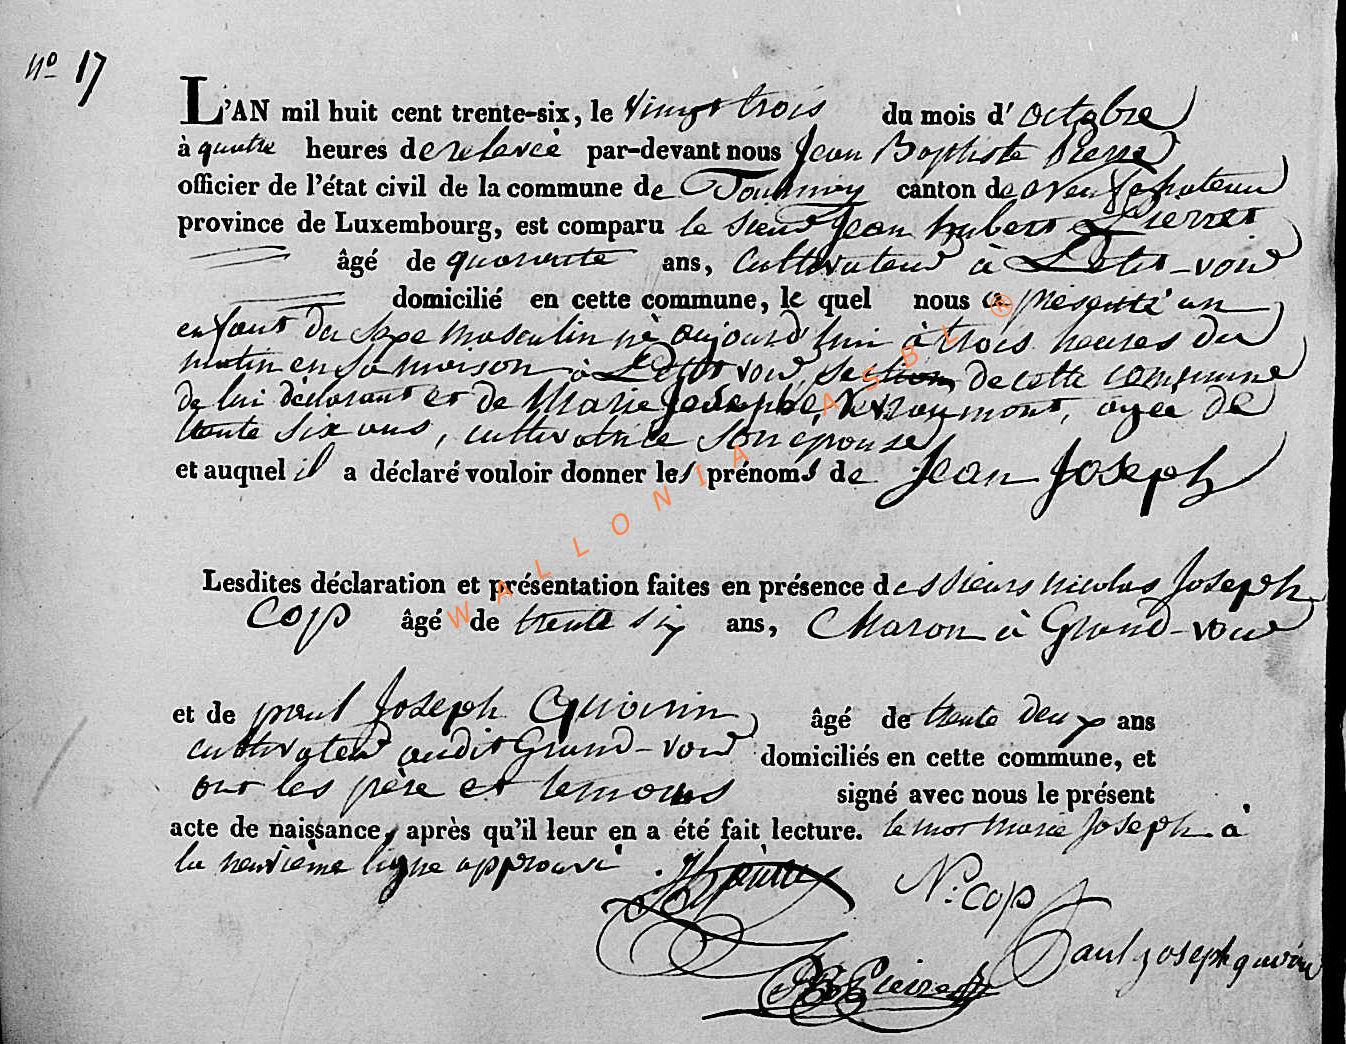 N° 17
L'AN mil huit cent trente-six, le vingt trois du mois d'octobre
à quatre heures de relevée par-devant nous Jean Baptiste Pierre
officier de l'état civil de la commune de Tournay canton de Neufchateau
province de Luxembourg, est comparu le sieur Jean hubert Pierret
âgé de quarante ans, cultivateur à Petit-voir
domicilié en cette commune, lequel nous a présenté un
enfant du sexe masculin né aujourd'hui à trois heures du
matin en sa maison à Petit voir, section de cette commune
de lui déclarant et de Marie Joseph, agée de
trente six ans, cultivatrice son épouse
et auquel il a déclaré vouloir donner les prénoms de Jean Joseph
Lesdites déclaration et présentation faites en présence des sieurs nicolas Joseph
Cop âgé de trente six ans, Charon à Grand-voir
et de paul Joseph Quoirin âgé de trente deux ans
cultivateur audit Grand-voir domiciliés en cette commune, et
ont les père et temoins signé avec nous le présent
acte de naissance, après qu'il leur en a été fait lecture. le mot Marie Joseph à
la neuvième ligne approuvé
N. Cop
Paul joseph quoirin
JB Pierret
WALLONIA ASBL ®